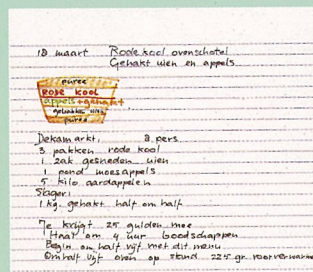 18 maart Rode kool ovenschotel
Gehakt uien en appels
puree
RODE KOOL
appels + gehakt
gebakken uien
puree
Dekamarkt, 8 pers
3 pakken rode kool
1 zak gesneden uien
1 pond moesappels
5 kilo aardappelen
Slager:
1 kg. gehakt half om half
Je krijgt 25 gulden mee
Haal om 4 uur boodschappen
Begin om half vijf met dit menu
Om half vijf oven op stand 225 gr. voorverwarmen